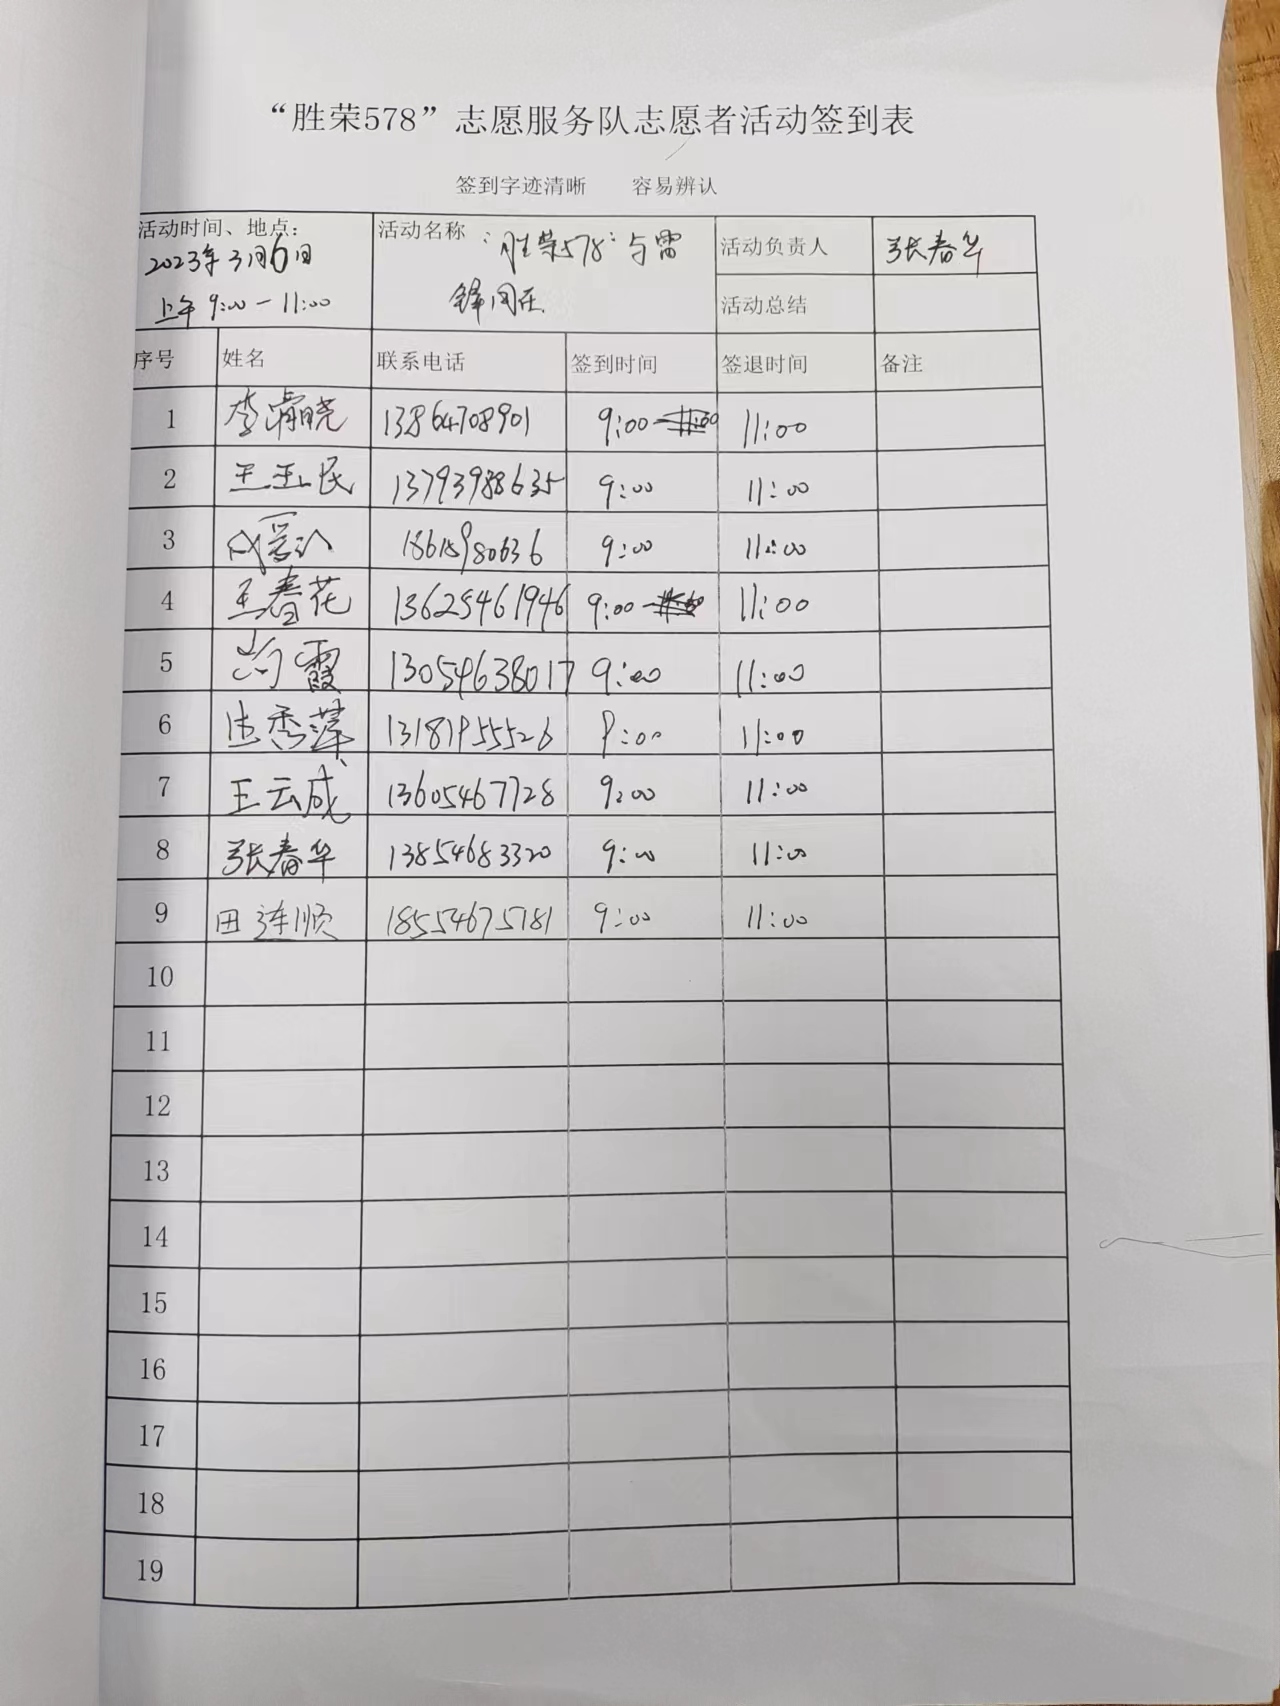 “胜荣578”志愿服务队志愿者活动签到表
签到字迹清晰 容易辨认
活动时间、地点:
2023年3月6日
上午 9:00-11:00
活动名称 “胜荣578”与雷
锋同在
活动负责人 张春华
活动总结
序号 姓名 联系电话 签到时间 签退时间 备注
1 李霄晓 13864708901 9:00 11:00
2 王玉民 13793988635 9:00 11:00
3 18615980636 9:00 11:00
4 王春花 13625461946 9:00 11:00
5 尚霞 13054638017 9:00 11:00
6 秀萍 13181955526 9:00 11:00
7 王云成 13605467728 9:00 11:00
8 张春华 13854683320 9:00 11:00
9 田连顺 18554675781 9:00 11:00
10
11
12
13
14
15
16
17
18
19